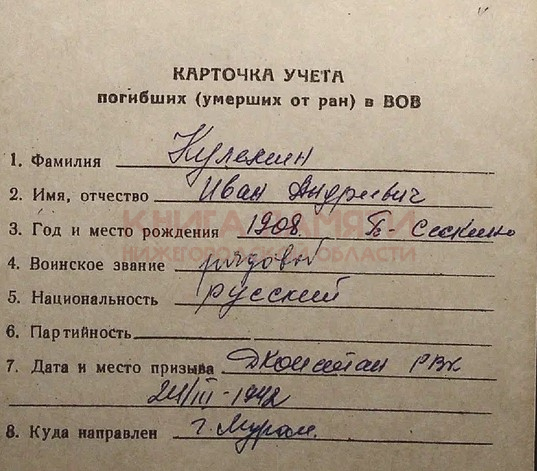 КАРТОЧКА УЧЕТА
погибших (умерших от ран) в ВОВ
1. Фамилия Кулемин
2. Имя, отчество Иван Андреевич
КНИГА ПАМЯТИ
3. Год и место рождения 1908 Б-Сескино
НИЖЕГОРОДСКОЙ ОБЛАСТИ
4. Воинское звание рядовой
5. Национальность русский
6. Партийность
7. Дата и место призыва РВК
24/III-1942
8. Куда направлен г. Муром.